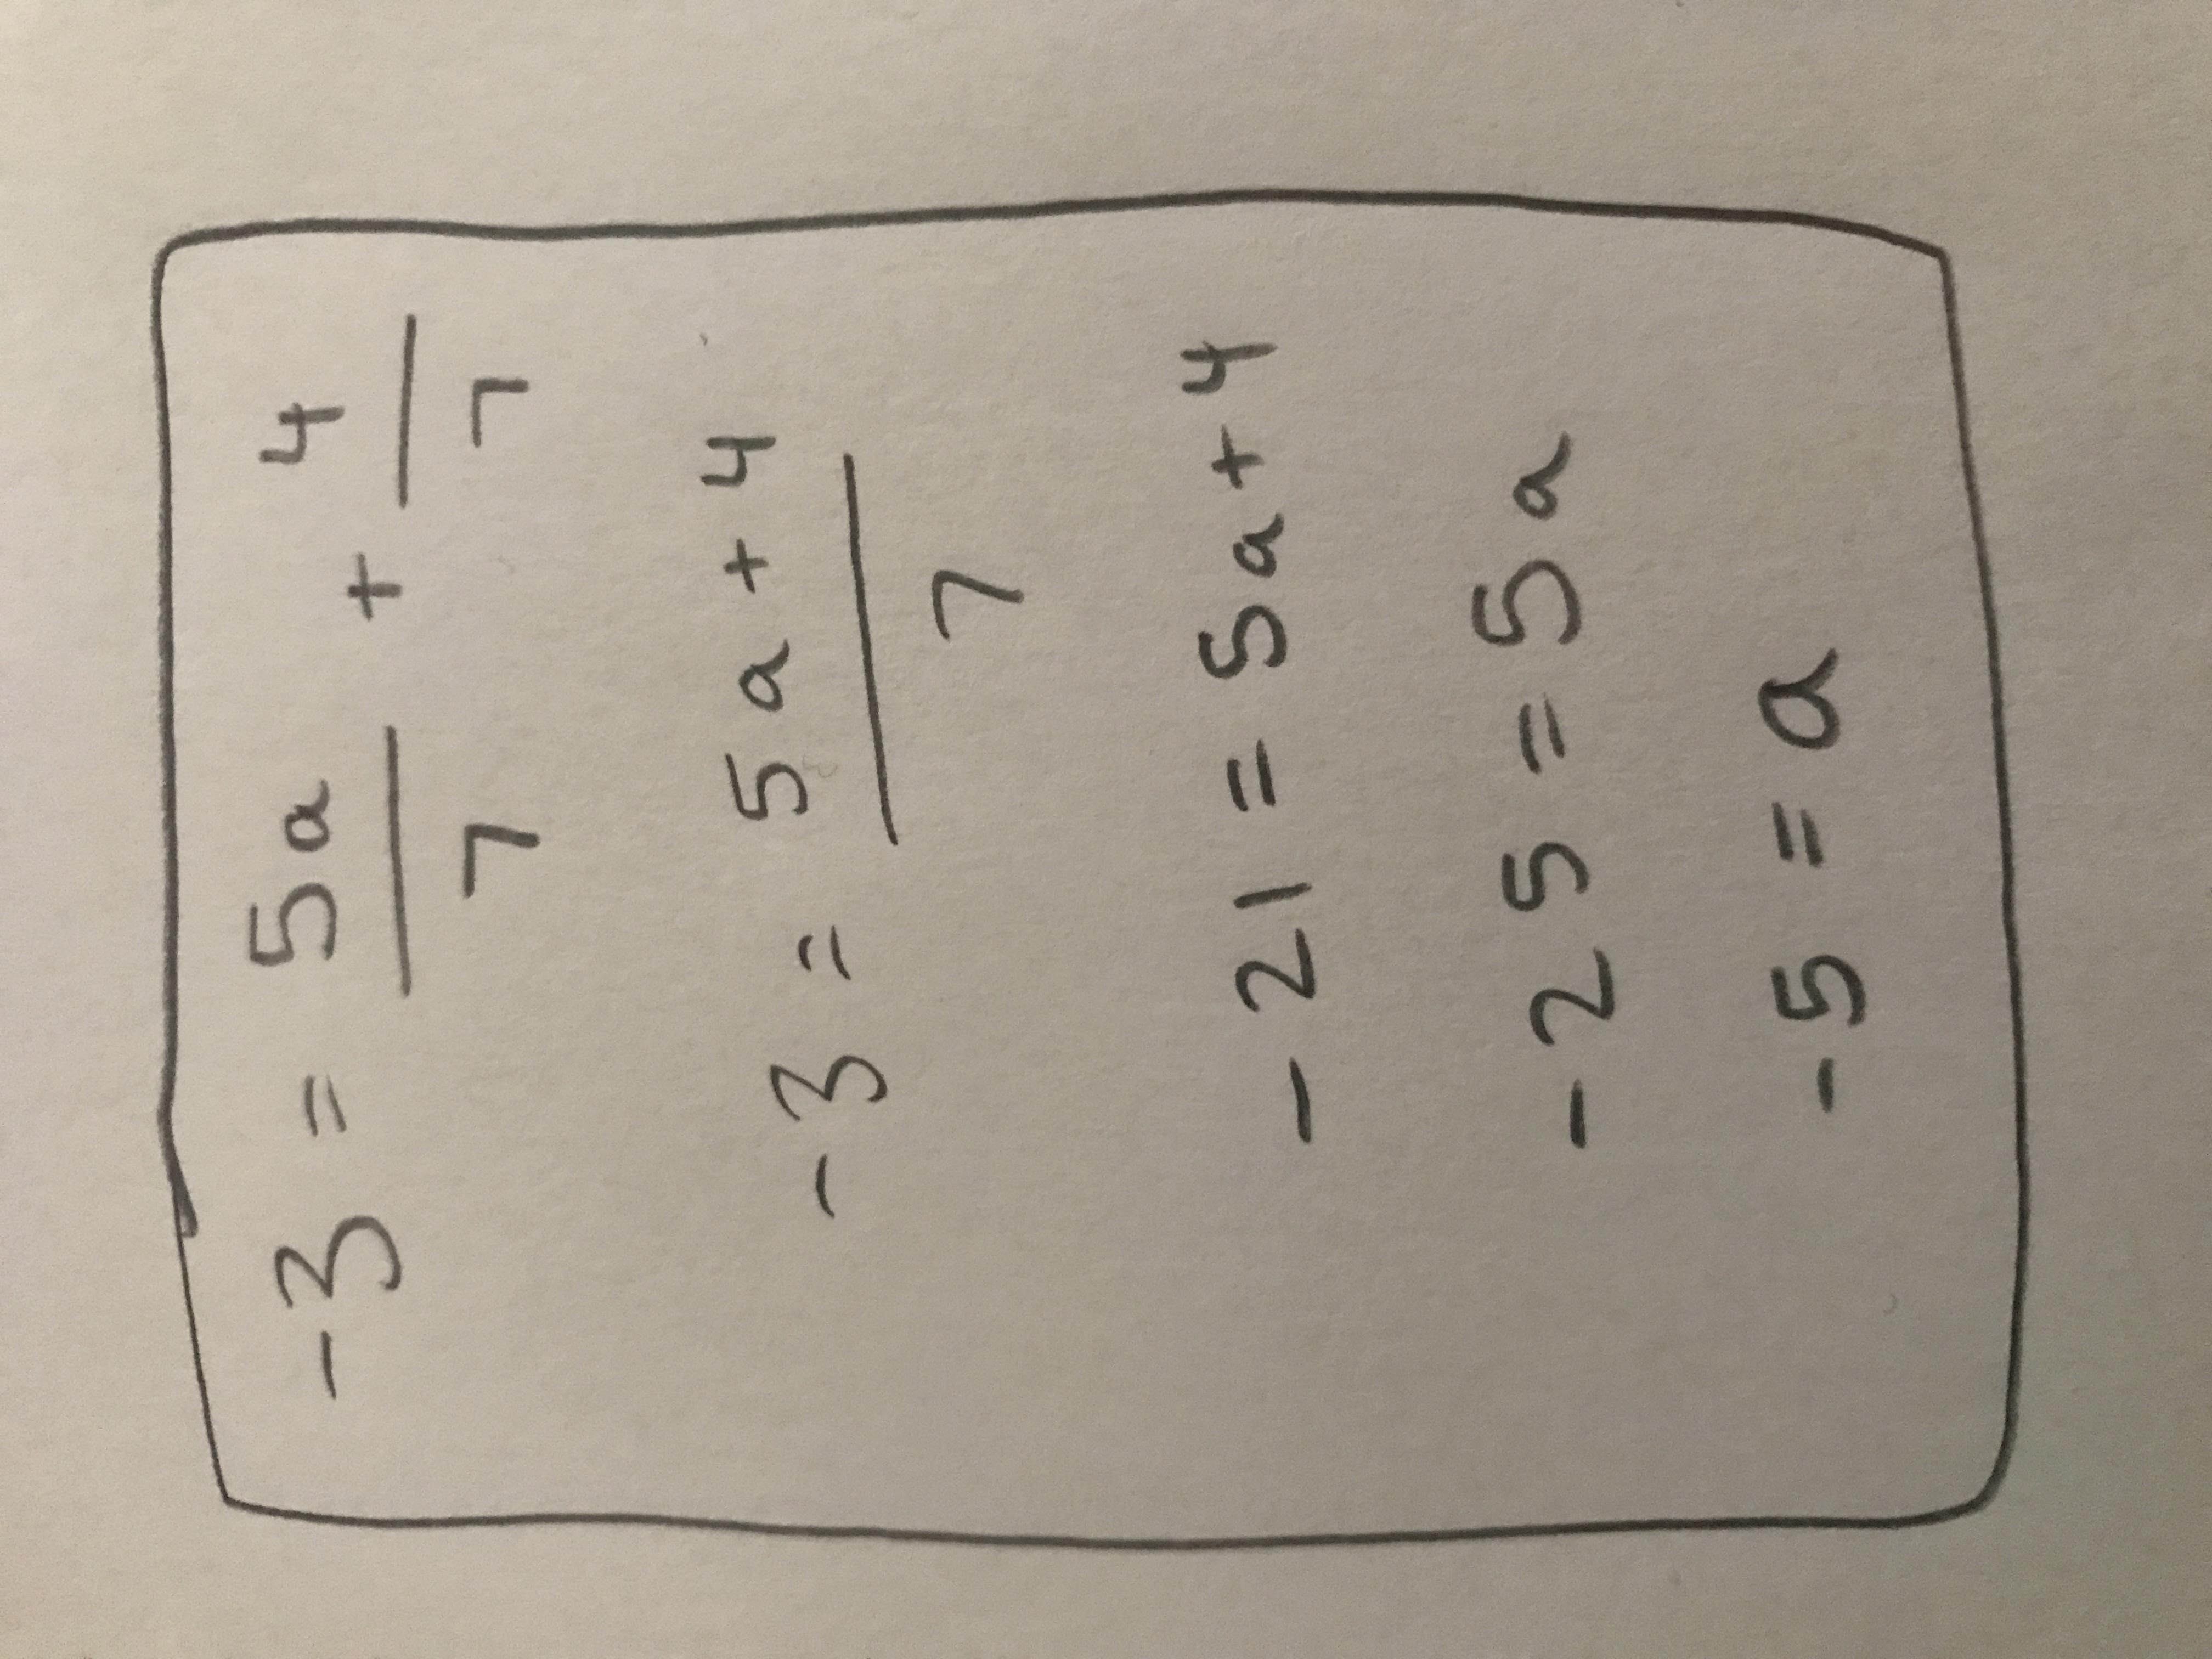 -3 = 5a/7 + 4/7
-3 = (5a+4)/7
-21 = 5a+4
-25 = 5a
-5 = a